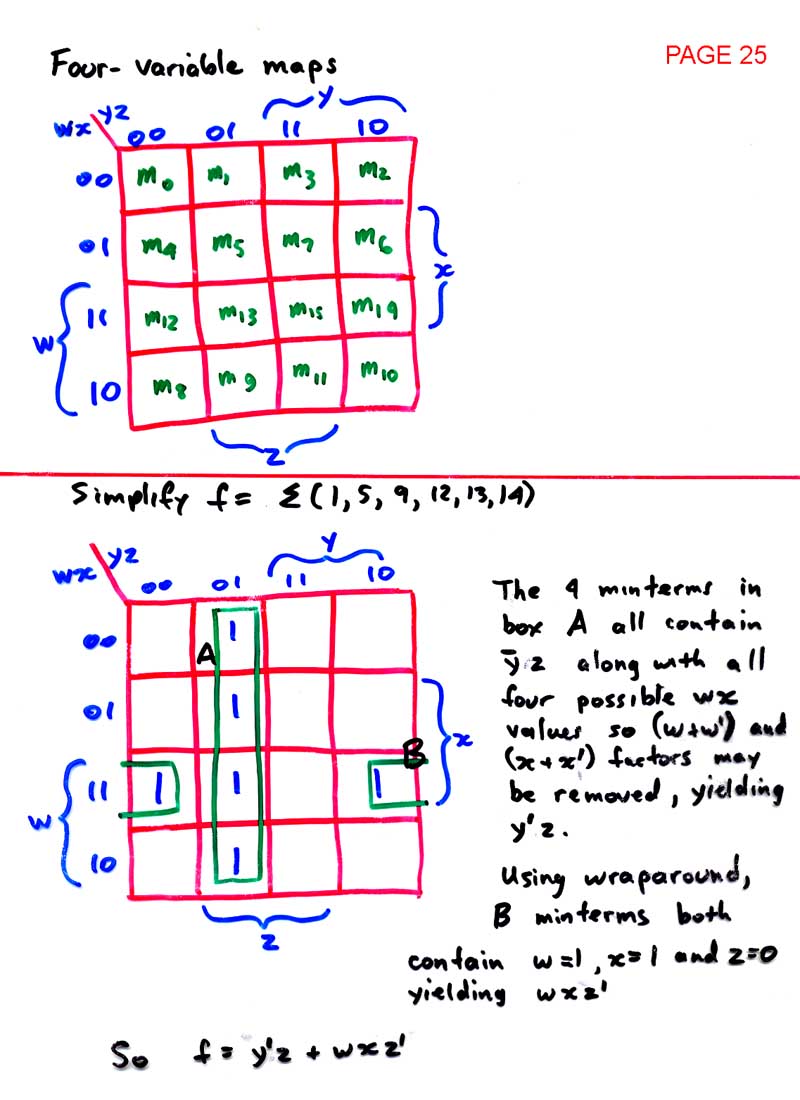 Four-variable maps
PAGE 25
y
wx yz 00 01 11 10
00 m0 m1 m3 m2
01 m4 m5 m7 m6
x
11 m12 m13 m15 m14
w
10 m8 m9 m11 m10
z
Simplify f = Σ(1, 5, 9, 12, 13, 14)
y
wx yz 00 01 11 10
00 1
A
01 1
x
B
11 1 1 1
w
10 1
z
The 4 minterms in
box A all contain
ȳz along with all
four possible wx
values so (w+w') and
(x+x') factors may
be removed, yielding
y'z.
Using wraparound,
B minterms both
contain w=1, x=1 and z=0
yielding wxz'
So f = y'z + wxz'